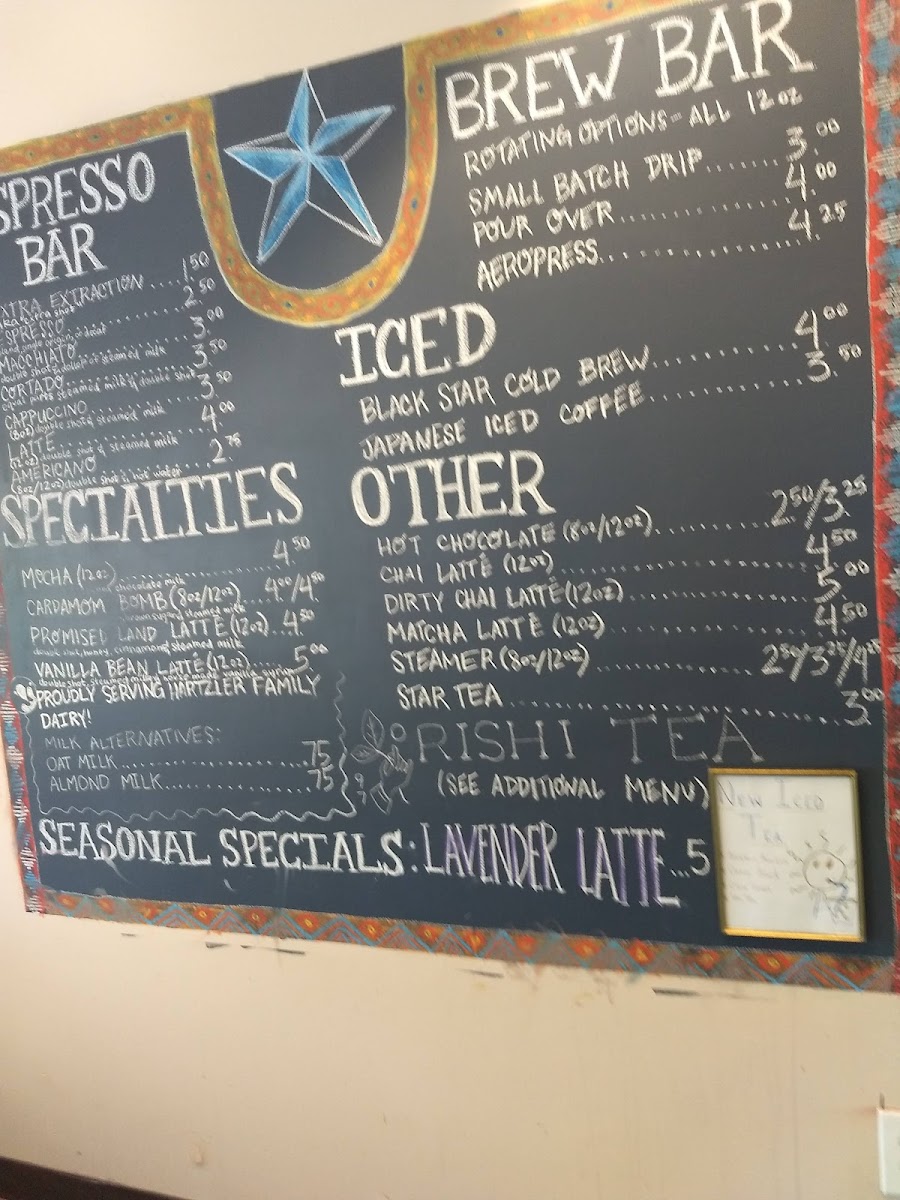 SPRESSO
BAR
XTRA EXTRACTION.....1.50
extra shot
ESPRESSO..........2.50
single origin, or
MACCHIATO..........3.00
double shot & dollop of steamed milk
CORTADO..........3.50
equal parts steamed milk & double shot
CAPPUCCINO..........3.50
(8oz) double shot & steamed milk
LATTE..........4.00
(12oz) double shot & steamed milk
AMERICANO..........2.75
(8oz/12oz) double shot & hot water
SPECIALTIES
MOCHA (12oz)..........4.50
chocolate milk
CARDAMOM BOMB (8oz/12oz)...4.00/4.50
brown sugar & steamed milk
PROMISED LAND LATTE (12oz)...4.50
double shot, honey, cinnamon & steamed milk
VANILLA BEAN LATTE (12oz)......5.00
double shot, steamed milk & house made vanilla syrup
PROUDLY SERVING HARTZLER FAMILY
DAIRY!
MILK ALTERNATIVES:
OAT MILK....................75
ALMOND MILK...............75
BREW BAR
ROTATING OPTIONS - ALL 12oz
SMALL BATCH DRIP.......3.00
POUR OVER...............4.00
AEROPRESS...............4.25
ICED
BLACK STAR COLD BREW..........4.00
JAPANESE ICED COFFEE..........3.50
OTHER
HOT CHOCOLATE (8oz/12oz)..........2.50/3.25
CHAI LATTÈ (12oz)....................4.50
DIRTY CHAI LATTÈ (12oz)...............5.00
MATCHA LATTÈ (12oz)...............4.50
STEAMER (8oz/12oz)...............2.50/3.25/4.25
STAR TEA..............................3.00
RISHI TEA
(SEE ADDITIONAL MENU)
SEASONAL SPECIALS: LAVENDER LATTE...5
NEW ICED
TEA